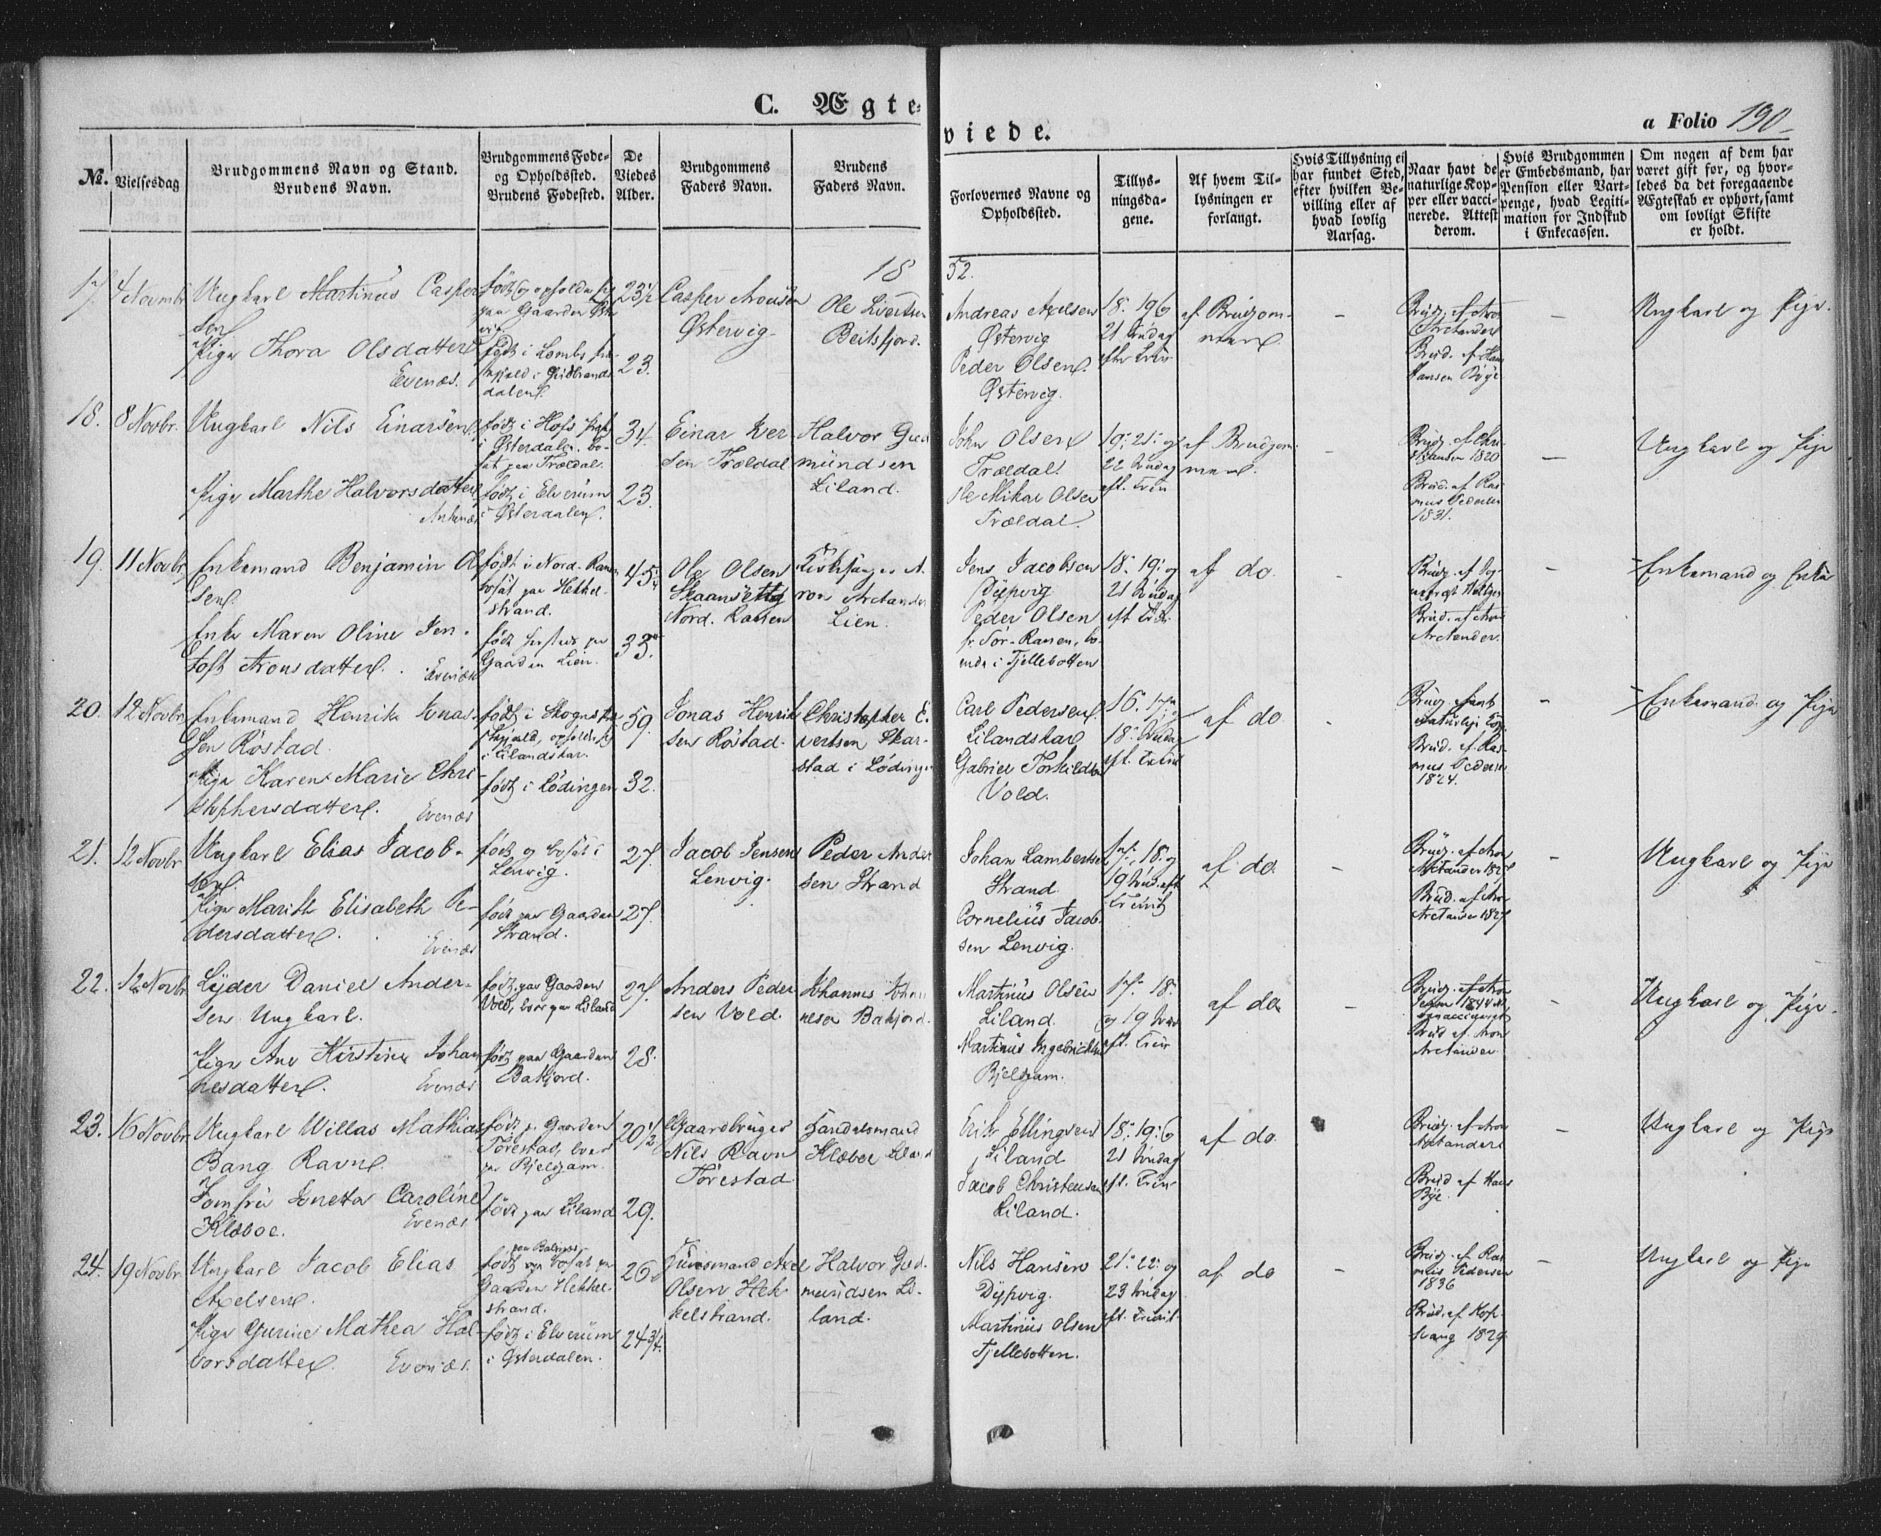 C. Ægte-
viede.
a Folio 190
No.
Vielsesdag
Brudgommens Navn og Stand.
Brudens Navn.
Brudgommens Føde-
og Opholdssted.
Brudens Fødested.
De
Viedes
Alder.
Brudgommens
Faders Navn.
Brudens
Faders Navn.
Forlovernes Navne og
Opholdssted.
Tillys-
ningsda-
gene.
Af hvem Til-
lysningen er
forlangt.
Hvis Tillysning ei
har fundet Sted,
efter hvilken Be-
villing eller af
hvad lovlig
Aarsag.
Naar havt de
naturlige Kop-
per eller vacci-
nerede. Attest
derom.
Hvis Brudgommen
er Embedsmand, har
Pension eller Vart-
penge, hvad Legiti-
mation for Indskud
i Enkecassen.
Om nogen af dem har
været gift før, og hvor-
ledes da det foregaaende
Ægteskab er ophørt, samt
om lovligt Skifte
er holdt.
18 52.
17. 4 Novembr
Ungkarl Martinus Casper
sen
Pige Thora Olsdatter
Evenæs.
født i Lombs
dalen
23½
23.
Casper Aronsen
Østervig
Ole Sivertsen
Beitsfjord.
Andreas Axelsen
Østervig
Peder Olsen
Østervig.
18. 19 &
21 Søndag
efter Trin.
af Brudgom-
men
Brudg. af Aron
Arctander
Brud. af Hans
Hansen Bye
Ungkarl og Pige.
18. 8 Novbr.
Ungkarl Nils Einarsen
Pige Marthe Halvorsdatter
Ankenæs
født i Hofs
i Østerdalen, bo-
sat paa Trældal.
født i Elverum
i Østerdalen.
34.
23.
Einar Iver-
sen Trældal
Halvor Gud
mundsen
Liland.
John Olsen
Trældal.
Ole Mikal Olsen
Trældal.
19. 21. og
22 Søndag
eft. Trin
af Brudgom-
men.
1820
Brud. af Ras
mus Pedersen
1831.
Ungkarl og Pige
19. 11 Novbr.
Enkemand Benjamin Ol
sen.
Enke Maren Oline Jen-
toft Aronsdatter.
Evenæs
født i Nord-Ranen
bosat paa Hekkel-
strand.
Gaarden Lien.
45.
33.
Ole Olsen
Nord-Ranen
Kirkesanger A-
ron Arctander
Lien.
Jens Jacobsen
Dypvig
Peder Olsen
fr Sør-Ranen, bo-
ende i Fjellebotten
18. 19. og
21 Søndag
eft. Trin.
af do.
Brud. af Aron
Arctander.
Enkemand og Enke
20. 12 Novbr.
Enkemand Henrik Jonas-
sen Røstad.
Pige Karen Marie Chri-
stophersdatter.
Evenæs
i Lilandskar.
født i Lødingen
59.
32.
Jonas Henrik
sen Røstad.
Christopher E.
vertsen Skar-
stad i Lødingen
Carl Pedersen
Lilandskar
Gabriel Torkildsen
Vold.
16. 17 og
18. Søndag
eft. Trinit
af do
Brud. af Ras-
mus Pedersen
1824.
Enkemand og Pige
21. 12 Novbr
Ungkarl Elias Jacob-
sen.
Pige Marith Elisabeth Pe-
dersdatter.
Evenæs
født og bosat i
Lenvig.
født paa Gaarden
Strand.
27.
27.
Jacob Jensen
Lenvig.
Peder Ander
sen Strand
Johan Lambertsen
Strand
Cornelius Jacob-
sen Lenvig.
17. 18. og
19 Sønd. eft
Trinit
af do.
Brudg. af Aron
Arctander
Brud. af Aron
Arctander 1827
Ungkarl og Pige
22. 12 Novbr
Lyder Daniel Ander-
sen Ungkarl.
Pige Ane Kirstine Johan
nesdatter.
Evenæs
født paa Gaarden
Vold, boer paa Liland
født paa Gaarden
Bakjord.
27.
28.
Anders Peder
sen Vold.
Johannes Johan
nesen Bakjord.
Martinus Olsen
Liland.
Martinus Ingebrigtsen
Bjelgam.
17. 18.
og 19 Sønd
eft. Trin.
af do
Brud af Aron
Arctander
Ungkarl og Pige.
23. 16 Novbr
Ungkarl Willas Mathias
Bang Ravn
Jomfru Jonetta Caroline
Klæboe.
Evenæs
født p. Gaarden
Tørestad, boer
paa Bjelgam.
født paa Liland
20½
29.
Gaardbruger
Nils Ravn
Tørestad
Handelsmand
Klæboe Liland
Erik Ellingsen
Liland
Jacob Christensen
Liland.
18. 19. &
21 Søndag
eft. Trin.
af do
Brudg. af Aron
Arctander
Brud af Hans
Bye.
Ungkarl og Pige
24. 19 Novbr.
Ungkarl Jacob Elias
Axelsen.
Pige Gurine Mathea Hal-
vorsdatter.
Evenæs.
født paa Balnæs, bosat paa
Gaarden Hekkel-
strand.
født i Elverum
i Østerdalen.
26
24¾.
Huusmand Axel
Olsen Hek-
kelstrand.
Halvor Gud.
mundsen Li-
land.
Nils Hansen
Dypvig.
Martinus Olsen
Fjellebotten.
21. 22. og
23 Søndag
eft. Trinit.
af do
Brudg. af Ras-
mus Pedersen
1836
Brud. af Kop-
svang 1829
Ungkarl og Pige